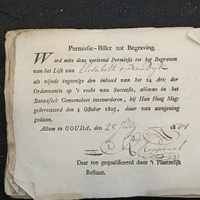 Permissie-Billet tot Begraving.
Word mits deze verleend Permissie tot het Begraven
van het Lijk van Elisabeth
als zijnde ingevolge den inhoud van het 14 Art: der
Ordonnantie op 't recht van Successie, alomme in het
Bataafsch Gemeenebest intevoeren, bij Hun Hoog Mog:
gearresteerd den 4 October 1805, daar van aangeving
gedaan.
Actum in GOUDA, den 25 July 180
Daar toe gequalificeerd door 't Plaatselijk
Bestuur.